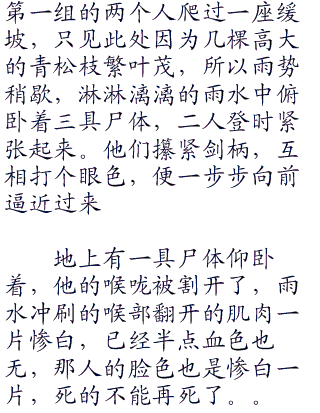 第一组的两个人爬过一座缓
坡，只见此处因为几棵高大
的青松枝繁叶茂，所以雨势
稍歇，淋淋漓漓的雨水中俯
卧着三具尸体，二人登时紧
张起来。他们攥紧剑柄，互
相打个眼色，便一步步向前
逼近过来
地上有一具尸体仰卧
着，他的喉咙被割开了，雨
水冲刷的喉部翻开的肌肉一
片惨白，已经半点血色也
无，那人的脸色也是惨白一
片，死的不能再死了。。